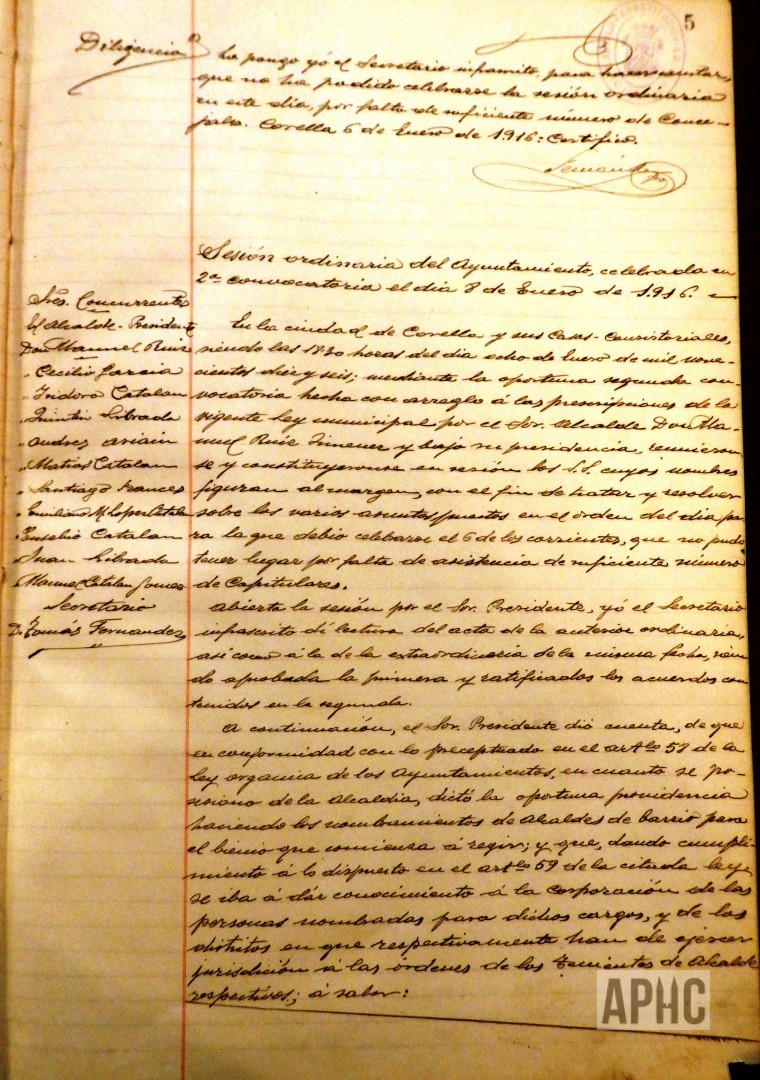 5
Diligencia
La pongo yó el Secretario infrascrito, para hacer constar,
que no ha podido celebrarse la sesión ordinaria
en este dia, por falta de suficiente número de Conce-
jales. Corella 6 de Enero de 1.916: Certifico.
Fernández
Sesión ordinaria del Ayuntamiento, celebrada en
2ª convocatoria el día 8 de Enero de 1.916.
Sres. Concurrentes
El Alcalde-Presidente
Don Manuel Ruiz
" Cecilio Garcia
" Isidoro Catalan
" Quintin Librada
" Andres Ariain
" Matias Catalan
" Santiago Frances
" Emiliano M. Lopez Catalan
" Eusebio Catalan
" Juan Librada
" Manuel Catalan Gomez
Secretario
D. Tomás Fernandez
En la ciudad de Corella y sus Casas-Consistoriales,
siendo las horas del dia ocho de Enero de mil nove-
cientos diez y seis; mediante la oportuna segunda con-
vocatoria hecha con arreglo á las prescripciones de la
vigente Ley municipal por el Sor. Alcalde Don Ma-
nuel Ruiz Jimenez y bajo su presidencia, reunieron-
se y constituyeronse en sesión los S.S. cuyos nombres
figuran al margen, con el fin de tratar y resolver
sobre los varios asuntos puestos en el orden del dia pa-
ra la que debio celebrarse el 6 de los corrientes, que no pudo
tener lugar por falta de asistencia de suficiente número
de Capitulares.
Abierta la sesión por el Sor. Presidente, yó el Secretario
infrascrito dí lectura del acta de la anterior ordinaria,
asi como á la de la extraordinaria de la misma fecha, sien-
do aprobada la primera y ratificados los acuerdos con-
tenidos en la segunda.
A continuación, el Sor. Presidente dió cuenta, de que
en conformidad con lo preceptuado en el artº 58 de la
Ley organica de los Ayuntamientos, en cuanto se po-
sesiono de la Alcaldia, dictó la oportuna providencia
haciendo los nombramientos de Alcaldes de barrio para
el bienio que comienza á regir; y que, dando cumpli-
miento á lo dispuesto en el artº 59 de la citada ley,
se iba á dár conocimiento á la Corporación de las
personas nombradas para dichos cargos, y de los
distritos en que respectivamente han de ejercer
jurisdición á las órdenes de los Tenientes de Alcalde
respectivos; á saber:
APHC